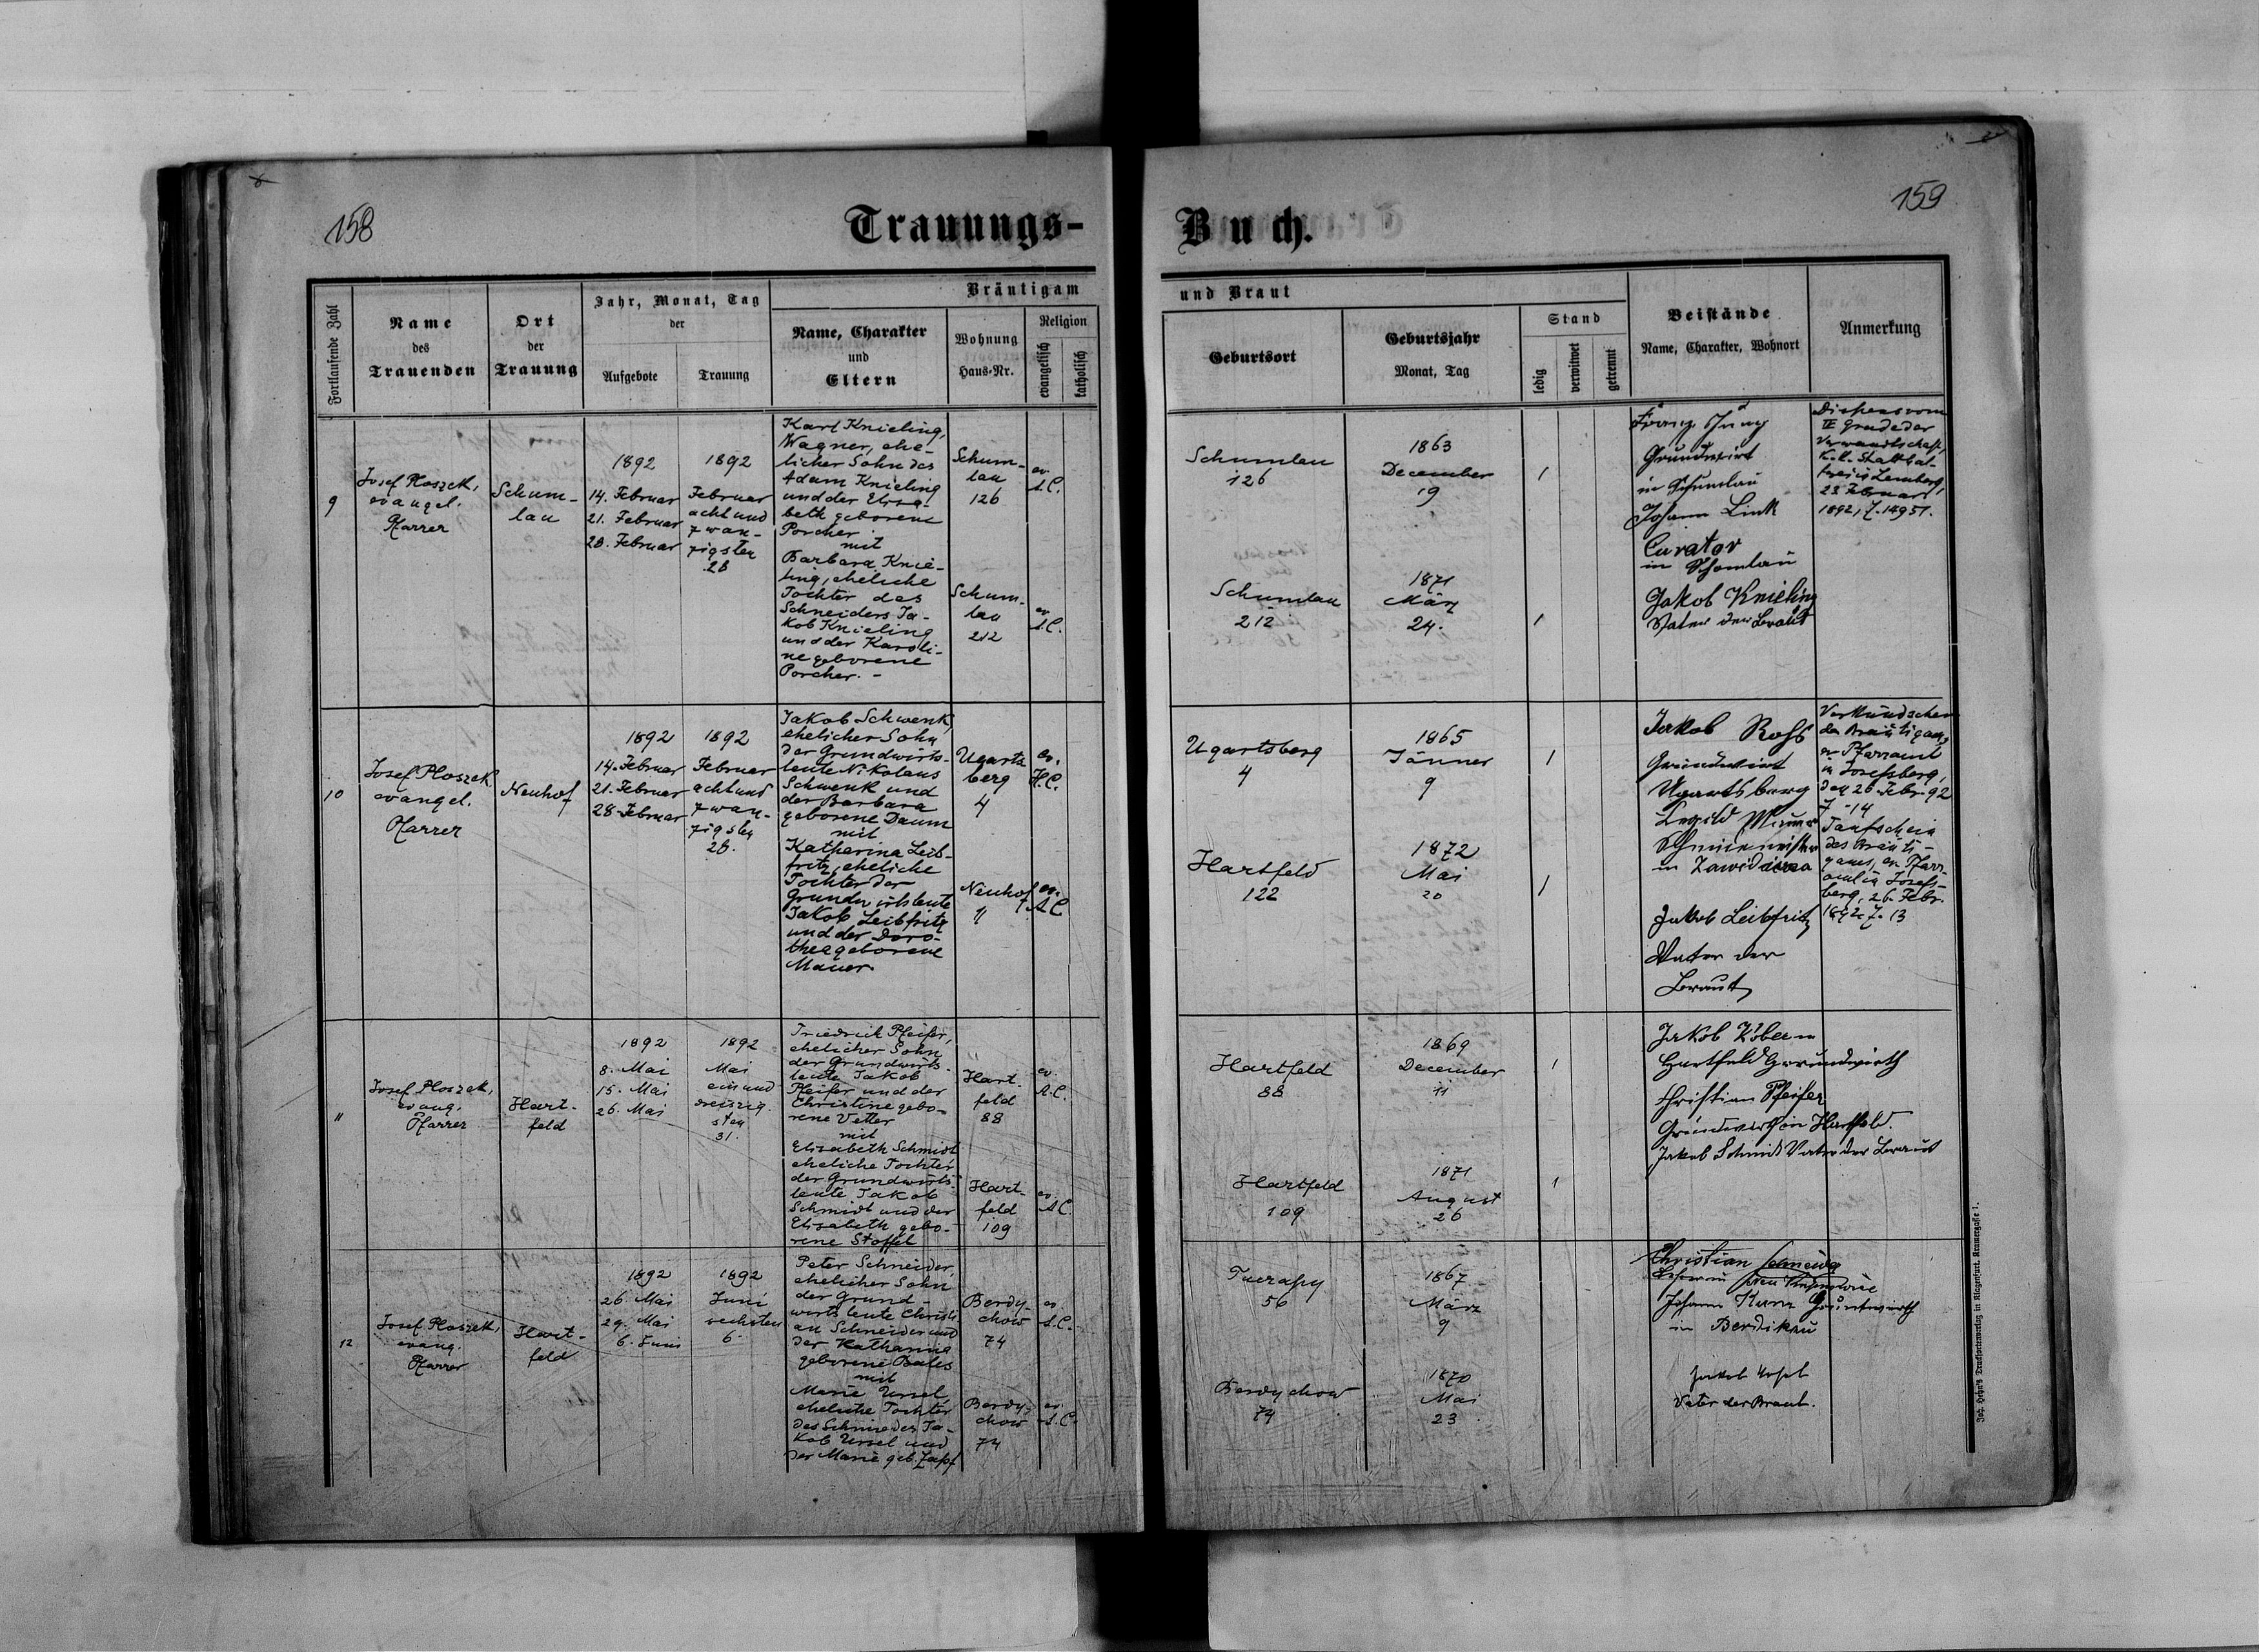 158
Trauungs-
Fortlaufende Zahl
Name
des
Trauenden
Ort
der
Trauung
Jahr, Monat, Tag
der
Aufgebote
Trauung
Bräutigam
Name, Charakter
und
Eltern
Wohnung
Haus-Nr.
Religion
evangelisch
katholisch
9
Josef Ploszek,
evangel.
Pfarrer
Schum-
lau
1892
14. Februar
21. Februar
28. Februar
1892
Februar
acht und
zwan-
zigsten
28
Karl Knieling,
Wagner, ehe-
licher Sohn des
Adam Knieling
und der Elisa-
beth geborene
Porcher
mit
Barbara Knie-
ling, eheliche
Tochter des
Schneiders Ja-
kob Knieling
und der Karoli-
ne geborene
Porcher. -
Schum-
lau
126
ev.
A.C.
Schum-
lau
212
ev.
A.C.
10
Josef Ploszek
evangel.
Pfarrer
Neuhof
1892
14. Februar
21. Februar
28. Februar
1892
Februar
acht und
zwan-
zigsten
28.
Jakob Schwenk,
ehelicher Sohn
der Grundwirts-
leute Nikolaus
Schwenk und
der Barbara
geborene Daum
mit
Katharina Leib-
fritz, eheliche
Tochter der
Grundwirtsleute
Jakob Leibfritz
und der Doro-
thea geborene
Mauer.
Ugarts
berg
4
ev.
H.C.
Neuhof
ev.
A.C
11
Josef Ploszek,
evang.
Pfarrer
Hart-
feld
1892
8. Mai
15. Mai
26. Mai
1892
Mai
ein und
dreiszig-
sten
31.
Friedrich Pfeifer,
ehelicher Sohn
der Grundwirts-
leute Jakob
Pfeifer und der
Christine gebo-
rene Vetter
mit
Elisabeth Schmidt
eheliche Tochter
der Grundwirts-
leute Jakob
Schmidt und der
Elisabeth gebo-
rene Stoffel
Hart-
feld
88
ev.
A.C.
Hart-
feld
109
ev.
A.C.
12
Josef Ploszek,
evang.
Pfarrer
Hart-
feld
1892
26. Mai
29. Mai
6. Juni
1892
Juni
sechsten
6.
Peter Schneider,
ehelicher Sohn
der Grund-
wirtsleute Christi
an Schneider und
der Katharina
geborene Bales
mit
Marie Ursel
eheliche Tochter
des Schmiedes Ja-
kob Ursel und
der Marie geb. Zapf
Berdy-
chow
74
ev.
A.C.
Berdy-
chow
74
ev.
A.C.
159
Buch.
und Braut
Geburtsort
Geburtsjahr
Monat, Tag
Stand
ledig
verwitwet
getrennt
Beistände
Name, Charakter, Wohnort
Anmerkung
Schumlau
126
1863
December
19
1
Franz Jung
Grundwirt
in Schumlau
Johann Link
Curator
in Schomlau
Dispens vom
Grade der
Verwandtschaft,
K.k. Statthal-
terei in Lemberg,
23 Februar
1892, Z. 14951.
Schumlau
212
1871
März
24.
1
Jakob Knieling
Vater der Braut
Ugartsberg
4
1865
Jänner
9
1
Jakob
Grundwirt
Ugartsberg
in
Verkündschein
des Bräutigams,
ev. Pfarramt
in Josefsberg,
den 26. Febr. 92
Z. 14
Taufschein
des Bräuti-
gams, ev. Pfarr-
amt in Josefs-
berg, 26. Febr.
1892 Z. 13
Hartfeld
122
1872
Mai
20
1
Jakob Leibfritz
Vater der
Braut
Hartfeld
88
1869
December
11
1
Jakob Köber in
Hartfeld Grundwirth
Christian Pfeifer
Grundwirth in Hartfeld.
Jakob Schmid Vater der Braut
Hartfeld
109
1871
August
26
1
56
1867
März
9
Christian
Johann Kunz Grundwirth
in Berdikau
Berdychow
74
1870
Mai
23
Jakob Ursel
Vater der Braut.
Joh. Heyn's Drucksortenverlag in Klagenfurt, Kramergasse 1.